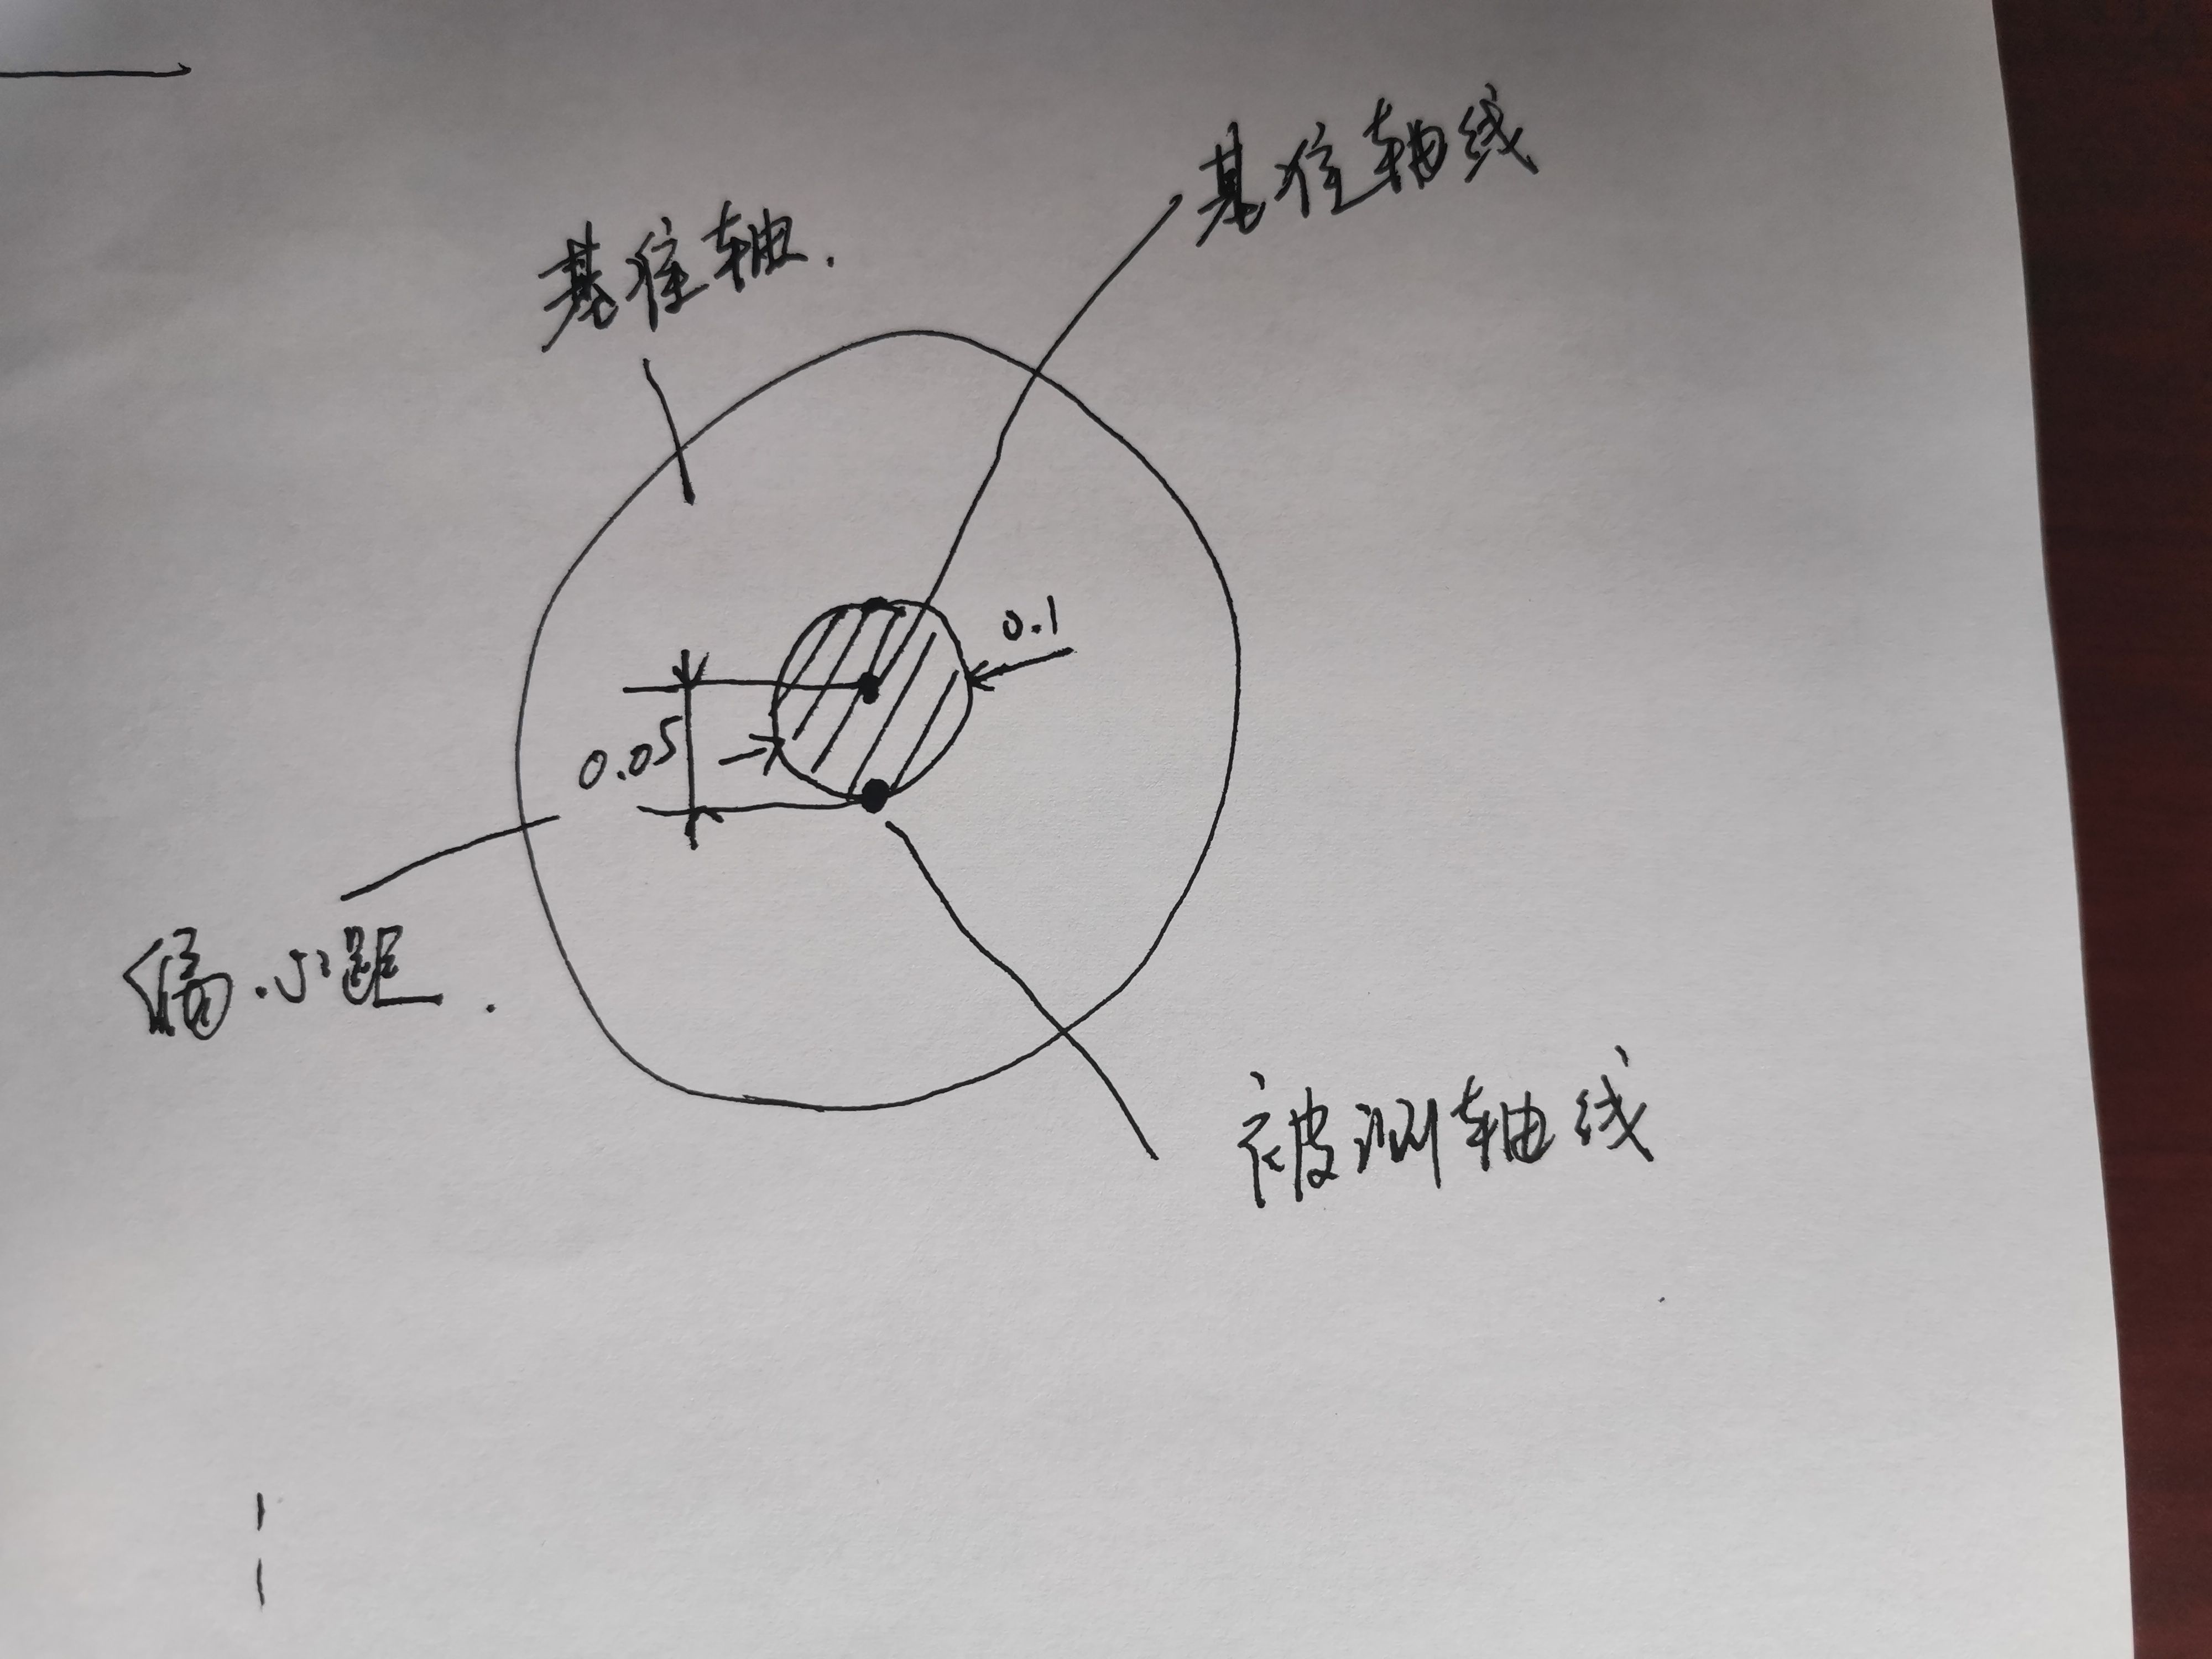 基准轴线
基准轴.
0.1
0.05
偏心距.
被测轴线